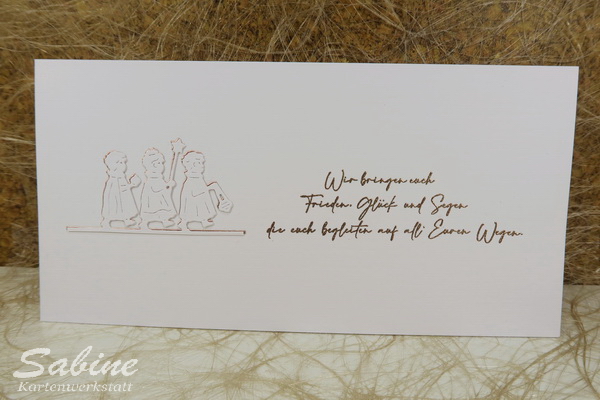 Wir bringen euch
Frieden, Glück und Segen
die euch begleiten auf all' Euren Wegen.
Sabine
Kartenwerkstatt